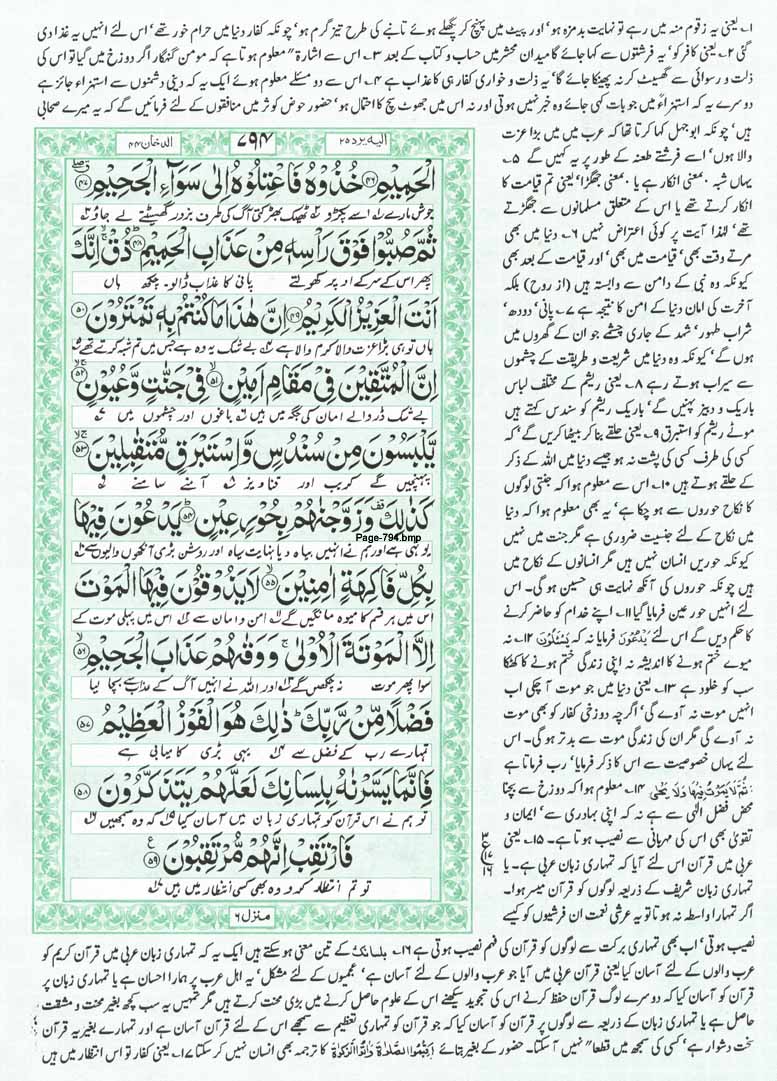 ۱؎ یعنی یہ زقوم منہ میں رہے تو نہایت بدمزہ ہو' اور پیٹ میں پہنچ کر پگھلے ہوئے تانبے کی طرح تیز گرم ہو' چونکہ کفار دنیا میں حرام خور تھے' اس لئے انہیں یہ غذا دی
گئی ۲؎ یعنی کافر کو' یہ فرشتوں سے کہا جائے گا میدان محشر میں حساب و کتاب کے بعد ۳؎ اس سے اشارۃ" معلوم ہوتا ہے کہ مومن گنہگار اگر دوزخ میں گیا تو اس کی
ذلت و رسوائی سے گھسیٹ کر نہ پھینکا جائے گا' یہ ذلت و خواری کفار ہی کا عذاب ہے ۴؎ اس سے دو مسئلے معلوم ہوئے ایک یہ کہ دینی دشمنوں سے استہزاء جائز ہے
دوسرے یہ کہ استہزاءً میں جو بات کہی جائے وہ خبر نہیں ہوتی اور نہ اس میں جھوٹ سچ کا احتمال ہو' حضور حوض کوثر میں منافقوں کے لئے فرمائیں گے کہ یہ میرے صحابی
ہیں' چونکہ ابوجہل کہا کرتا تھا کہ عرب میں میں بڑا عزت
والا ہوں' اسے فرشتے طعنہ کے طور پر یہ کہیں گے ۵؎
یہاں شبہ بمعنی انکار ہے یا بمعنی جھگڑا' یعنی تم قیامت کا
انکار کرتے تھے یا اس کے متعلق مسلمانوں سے جھگڑتے
تھے' لہٰذا آیت پر کوئی اعتراض نہیں ۶؎ دنیا میں بھی
مرتے وقت بھی' قیامت میں بھی' اور قیامت کے بعد بھی
کیونکہ وہ نبی کے دامن سے وابستہ ہیں (از روح) بلکہ
آخرت کی امان دنیا کے امن کا نتیجہ ہے ۷؎ پانی' دودھ'
شراب طہور' شہد کے جاری چشمے جو ان کے گھروں میں
ہوں گے' کیونکہ وہ دنیا میں شریعت و طریقت کے چشموں
سے سیراب ہوتے رہے ۸؎ یعنی ریشم کے مختلف لباس
باریک و دبیز پہنیں گے' باریک ریشم کو سندس کہتے ہیں
موٹے ریشم کو استبرق ۹؎ یعنی حلقے بنا کر بیٹھا کریں گے' کہ
کسی کی طرف کسی کی پشت نہ ہو جیسے دنیا میں اللہ کے ذکر
کے حلقے ہوتے ہیں ۱۰؎ اس سے معلوم ہوا کہ جنتی لوگوں
کا نکاح حوروں سے ہو چکا ہے' یہ بھی معلوم ہوا کہ دنیا
میں نکاح کے لئے جنسیت ضروری ہے مگر جنت میں نہیں
کیونکہ حوریں انسان نہیں ہیں مگر انسانوں کے نکاح میں
ہیں چونکہ حوروں کی آنکھ نہایت ہی حسین ہو گی۔ اس
لئے انہیں حور عین فرمایا گیا ۱۱؎ اپنے خدام کو حاضر کرنے
کا حکم دیں گے اس لئے یَدْعُوْنَ فرمایا نہ کہ یَسْئَلُوْنَ ۱۲؎ نہ
میوے ختم ہونے کا اندیشہ نہ اپنی زندگی ختم ہونے کا کھٹکا
سب کو خلود ہے ۱۳؎ یعنی دنیا میں جو موت آ چکی اب
انہیں موت نہ آوے گی' اگرچہ دوزخی کفار کو بھی موت
نہ آوے گی مگر ان کی زندگی موت سے بدتر ہو گی۔ اس
لئے یہاں خصوصیت سے اس کا ذکر فرمایا' رب فرماتا ہے
ثُمَّ لَا یَمُوْتُ فِیْهَا وَلَا یَحْیٰی ۱۴؎ معلوم ہوا کہ دوزخ سے بچنا
محض فضل الٰہی سے ہے نہ کہ اپنی بہادری سے' ایمان و
تقویٰ بھی اس کی مہربانی سے نصیب ہوتا ہے۔ ۱۵؎ یعنی
عربی میں قرآن اس لئے آیا کہ تمہاری زبان عربی ہے۔ یا
تمہاری زبان شریف کے ذریعہ لوگوں کو قرآن میسر ہوا۔
اگر تمہارا واسطہ نہ ہوتا تو یہ عرشی نعمت ان فرشیوں کو کیسے
الیہ یردہ ۲۵
۷۹۴
الدخان ۴۴
الْحَمِیْمِ ۴۶ خُذُوْهُ فَاعْتِلُوْهُ اِلٰی سَوَآءِ الْجَحِیْمِ ۴۷
جوش مارے اسے پکڑو ٹھیک بھڑکتی آگ کی طرف بزور گھسیٹتے لے جاؤ
ثُمَّ صُبُّوْا فَوْقَ رَاْسِهٖ مِنْ عَذَابِ الْحَمِیْمِ ۴۸ ذُقْ اِنَّكَ
پھر اس کے سر کے اوپر کھولتے پانی کا عذاب ڈالو۔ چکھ ہاں
اَنْتَ الْعَزِیْزُ الْكَرِیْمُ ۴۹ اِنَّ هٰذَا مَا كُنْتُمْ بِهٖ تَمْتَرُوْنَ ۵۰
ہاں تو ہی بڑا عزت والا کرم والا ہے بے شک یہ وہ ہے جس میں تم شبہ کرتے تھے
اِنَّ الْمُتَّقِیْنَ فِیْ مَقَامٍ اَمِیْنٍ ۵۱ فِیْ جَنّٰتٍ وَّعُیُوْنٍ ۵۲
بے شک ڈر والے امان کی جگہ میں ہیں باغوں اور چشموں میں
یَّلْبَسُوْنَ مِنْ سُنْدُسٍ وَّاِسْتَبْرَقٍ مُّتَقٰبِلِیْنَ ۵۳
پہنیں گے کریب اور قناویز آمنے سامنے
كَذٰلِكَ وَزَوَّجْنٰهُمْ بِحُوْرٍ عِیْنٍ ۵۴ یَدْعُوْنَ فِیْهَا
Page-794.bmp
یو نہی ہے اور ہم نے انہیں بیاہ دیا نہایت سیاہ اور روشن بڑی آنکھوں والیوں سے
بِكُلِّ فَاكِهَةٍ اٰمِنِیْنَ ۵۵ لَا یَذُوْقُوْنَ فِیْهَا الْمَوْتَ
اس میں ہر قسم کا میوہ مانگیں گے امن و امان سے اس میں پہلی موت کے
اِلَّا الْمَوْتَةَ الْاُوْلٰی وَوَقٰىهُمْ عَذَابَ الْجَحِیْمِ ۵۶
سوا پھر موت نہ چکھیں گے اور اللہ نے انہیں آگ کے عذاب سے بچا لیا
فَضْلًا مِّنْ رَّبِّكَ ذٰلِكَ هُوَ الْفَوْزُ الْعَظِیْمُ ۵۷
تمہارے رب کے فضل سے یہی بڑی کامیابی ہے
فَاِنَّمَا یَسَّرْنٰهُ بِلِسَانِكَ لَعَلَّهُمْ یَتَذَكَّرُوْنَ ۵۸
تو ہم نے اس قرآن کو تمہاری زبان میں آسان کیا کہ وہ سمجھیں
فَارْتَقِبْ اِنَّهُمْ مُّرْتَقِبُوْنَ ۵۹
تو تم انتظار کرو وہ بھی کسی انتظار میں ہیں
منزل ۶
نصیب ہوتی' اب بھی تمہاری برکت سے لوگوں کو قرآن کی فہم نصیب ہوتی ہے ۱۶؎ بلسانک کے تین معنی ہو سکتے ہیں ایک یہ کہ تمہاری زبان عربی میں قرآن کریم کو
عرب والوں کے لئے آسان کیا یعنی قرآن عربی میں آیا جو عرب والوں کے لئے آسان ہے' عجمیوں کے لئے مشکل' یہ اہل عرب پر ہمارا احسان ہے یا تمہاری زبان پر
قرآن کو آسان کیا کہ دوسرے لوگ قرآن حفظ کرنے اس کی تجوید سیکھنے اس کے علوم حاصل کرنے میں بڑی محنت کرتے ہیں مگر تمہیں یہ سب کچھ بغیر محنت و مشقت
حاصل ہے یا تمہاری زبان کے ذریعہ سے لوگوں پر قرآن کو آسان کیا کہ جو قرآن کو تمہاری تعظیم سے سمجھے اس کے لئے قرآن آسان ہے اور تمہارے بغیر یہ قرآن
سخت دشوار ہے' کسی کی سمجھ میں قطعا" نہیں آ سکتا۔ حضور کے بغیر بتائے اَقِیْمُوا الصَّلٰوةَ وَاٰتُوا الزَّكٰوةَ کا ترجمہ بھی انسان نہیں کر سکتا ۱۷؎ یعنی کفار تو اس انتظار میں ہیں